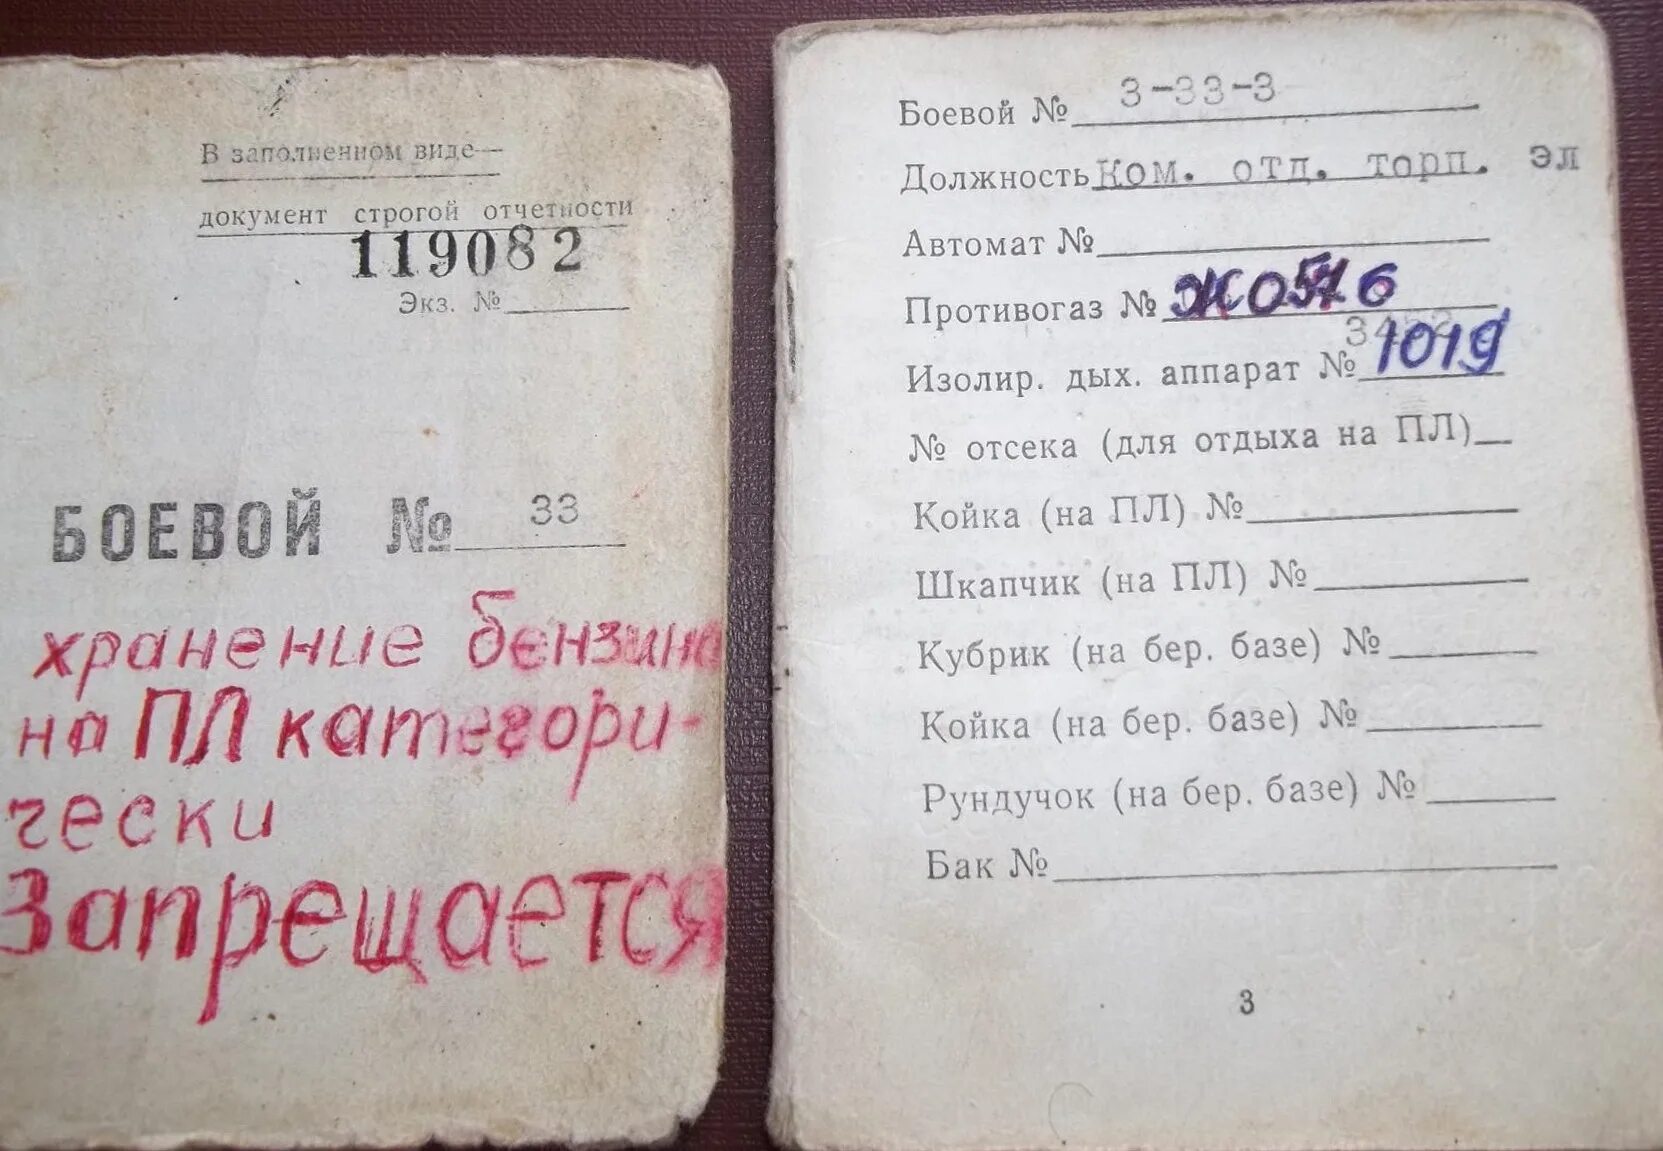 В заполненном виде—
документ строгой отчетности
119082
Экз. №
БОЕВОЙ № 33
хранение бензина
на ПЛ категори-
чески
Запрещается
Боевой № 3-33-3
Должность Ком. отд. торп. эл
Автомат №
Противогаз №
Изолир. дых. аппарат № 1019
№ отсека (для отдыха на ПЛ)
Койка (на ПЛ) №
Шкапчик (на ПЛ) №
Кубрик (на бер. базе) №
Койка (на бер. базе) №
Рундучок (на бер. базе) №
Бак №
3